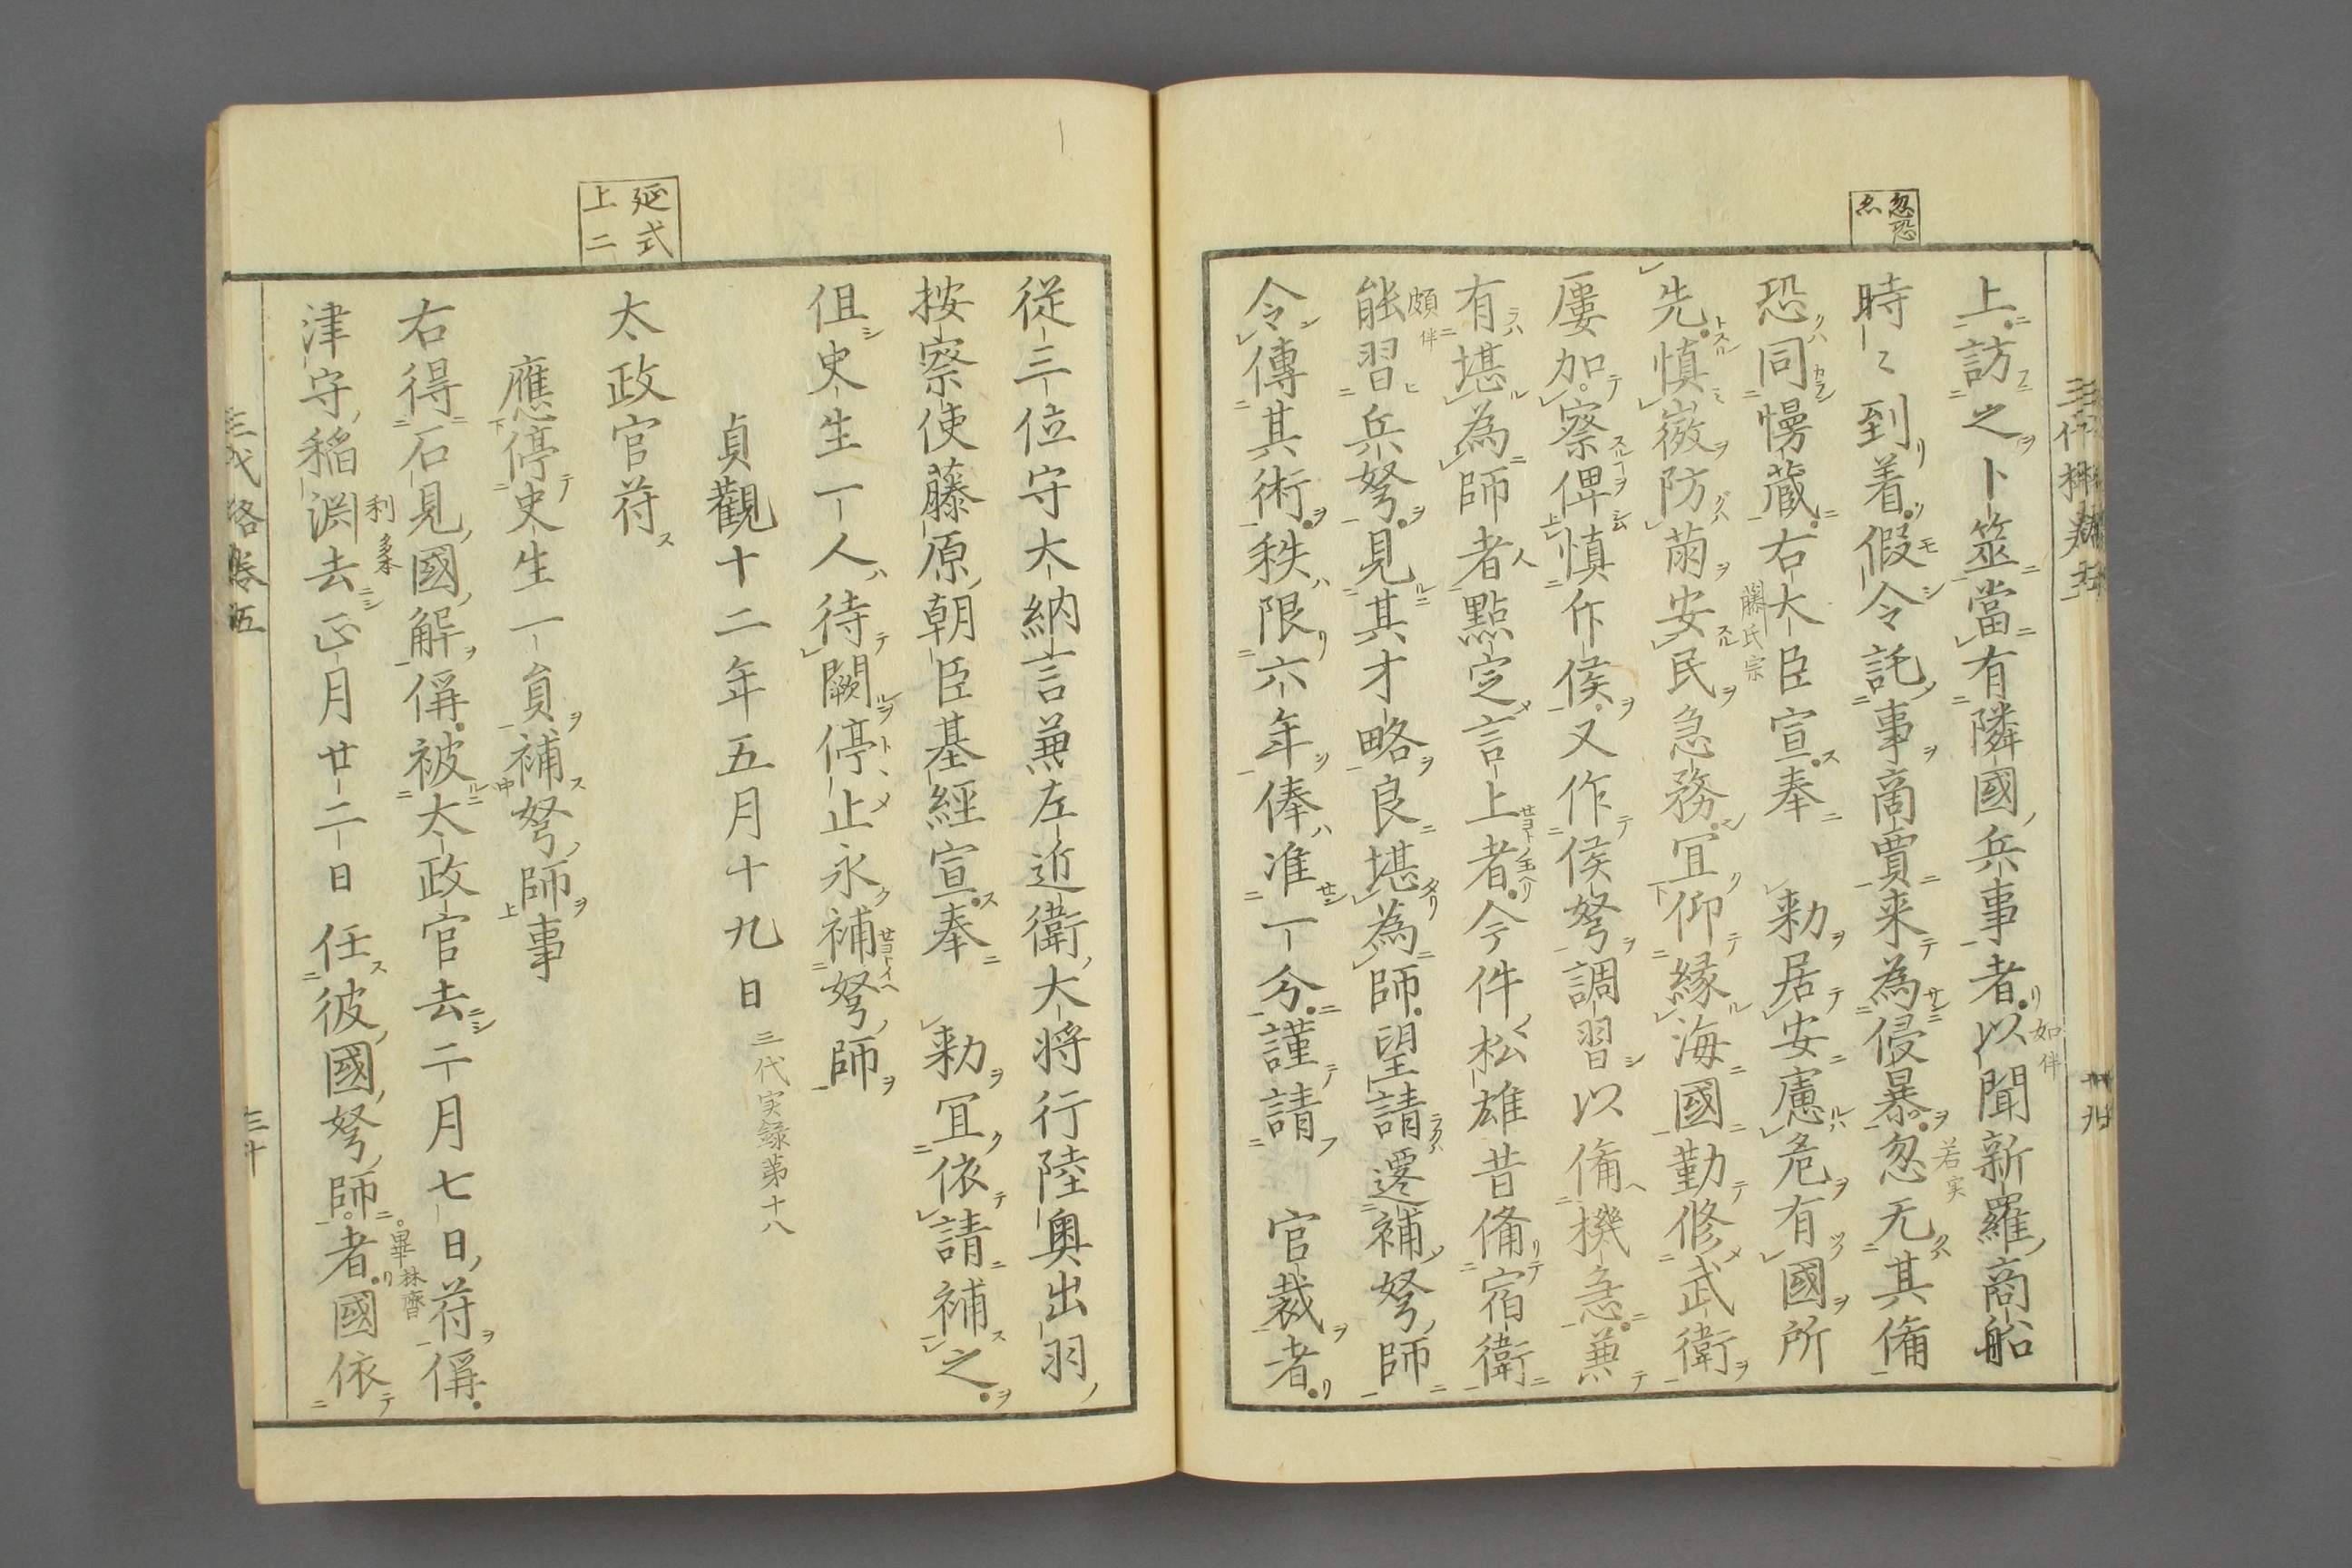 忽恐
上訪之卜筮當有隣國兵事者以聞新羅商船
如件
時〻到着假令託事商賈来為侵暴忽无其備
若実
恐同慢蔵右大臣宣奉　勅居安慮危有國所
藤氏宗
先慎嶶防萠安民急務冝仰縁海國勤修武衛
屢加察俾慎作侯又作侯弩調習以備機急兼
有堪為師者點定言上者今件松雄昔備宿衛
頗件
能習兵弩見其才略良堪為師望請遷補弩師
令傳其術秩限六年俸准一分謹請　官裁者
從三位守大納言兼左近衛大将行陸奥出羽
按察使藤原朝臣基經宣奉　勅冝依請補之
但史生一人待闕停止永補弩師
貞觀十二年五月十九日 三代実録第十八
延式
上二
太政官符
應停史生一負補弩師事
右得石見國解偁被太政官去二月七日符偁
津守稲淵去正月廿二日任彼國弩師者國依
利
畢
三代格巻五
三十